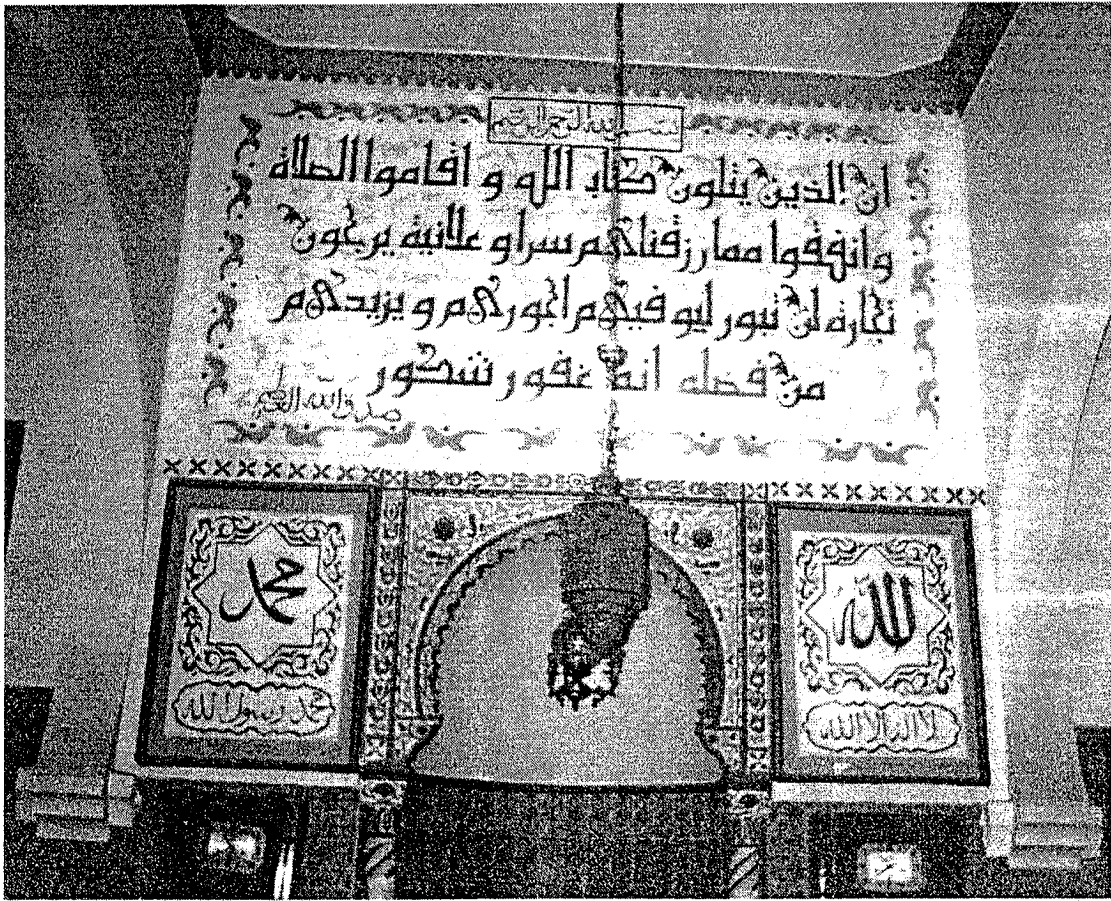 بسم الله الرحمن الرحيم
ان الذين يتلون كتاب الله و اقاموا الصلاة
وانفقوا مما رزقناهم سرا و علانية يرجون
تجارة لن تبور ليوفيهم اجورهم و يزيدهم
من فضله انه غفور شكور
صدق الله العظيم
الله
لا اله الا الله
محمد
محمد رسول الله